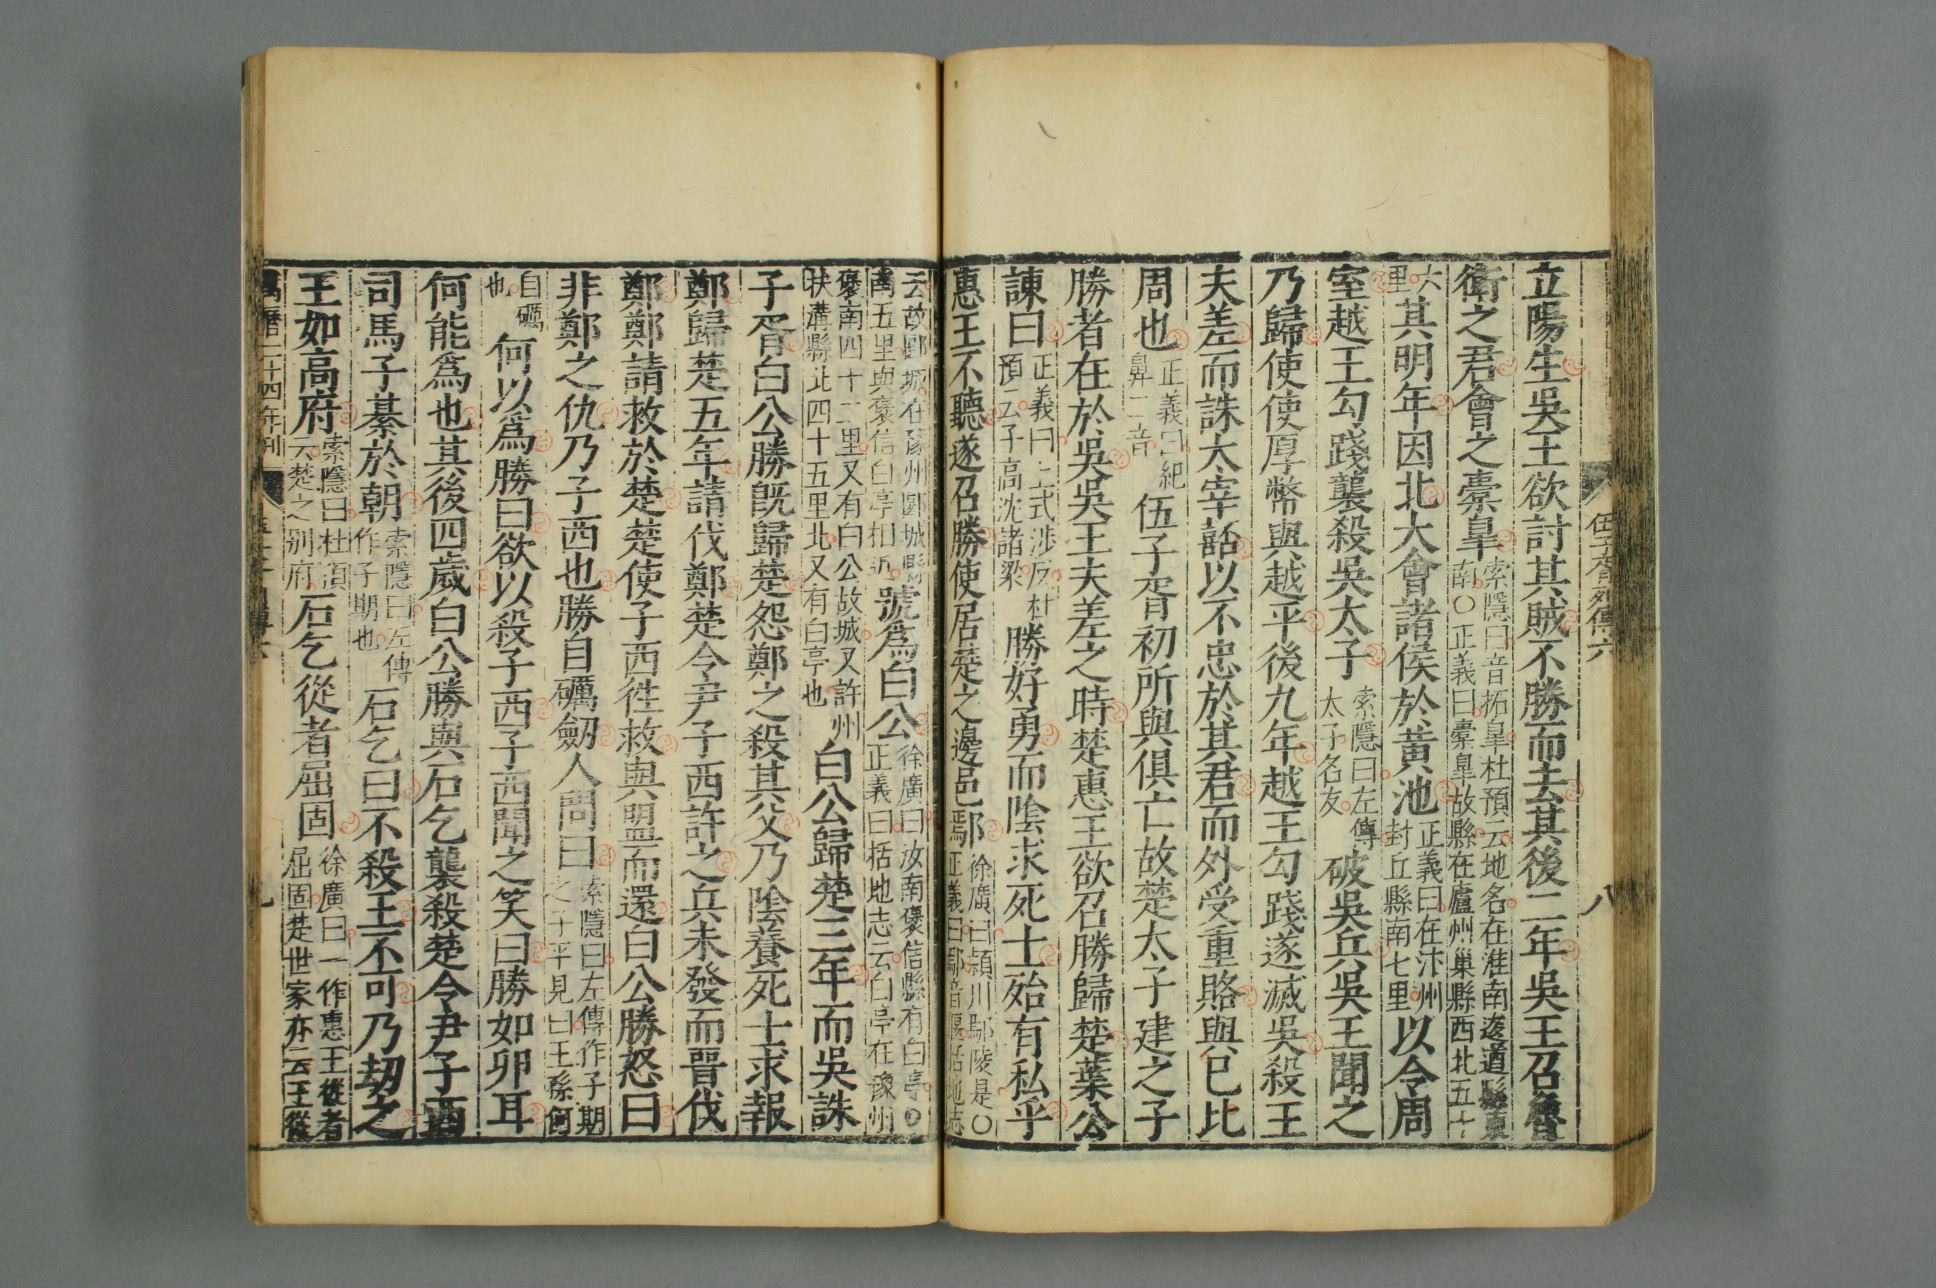 伍子胥列傳六
八
立陽生吳王欲討其賊不勝而去其後二年吳王召魯
衛之君會之橐臯索隱曰音拓臯杜預云地名在淮南逡遒縣東南○正義曰橐臯故縣在廬州巢縣西北五十
六里其明年因北大會諸侯於黃池正義曰在汴州封丘縣南七里以令周
室越王勾踐襲殺吳太子索隱曰左傳太子名友破吳兵吳王聞之
乃歸使使厚幣與越平後九年越王勾踐遂滅吳殺王
夫差而誅太宰嚭以不忠於其君而外受重賂與己比
周也正義曰紀鼻二音伍子胥初所與俱亡故楚太子建之子
勝者在於吳吳王夫差之時楚惠王欲召勝歸楚葉公
諫曰正義曰上式涉反杜預云子高沈諸梁勝好勇而陰求死士殆有私乎
惠王不聽遂召勝使居楚之邊邑鄢徐廣曰潁川鄢陵是○正義曰鄢音偃括地志
云故鄢城在豫州郾城縣南五里與褒信白亭相近號爲白公徐廣曰汝南褒信縣有白亭○正義曰括地志云白亭在豫州
褒南四十二里又有白公故城又許州扶溝縣北四十五里北又有白亭也白公歸楚三年而吳誅
子胥白公勝旣歸楚怨鄭之殺其父乃陰養死士求報
鄭歸楚五年請伐鄭楚令尹子西許之兵未發而晉伐
鄭鄭請救於楚楚使子西徃救與盟而還白公勝怒曰
非鄭之仇乃子西也勝自礪劒人問曰索隱曰左傳作子期之子平見曰王孫何
自礪也何以爲勝曰欲以殺子西子西聞之笑曰勝如卵耳
何能爲也其後四歲白公勝與石乞襲殺楚令尹子西
司馬子綦於朝索隱曰左傳作子期也石乞曰不殺王不可乃劫之
王如高府索隱曰杜預云楚之別府石乞從者屈固徐廣曰一作惠王從者屈固楚世家亦云王從
萬曆二十四年刊
九